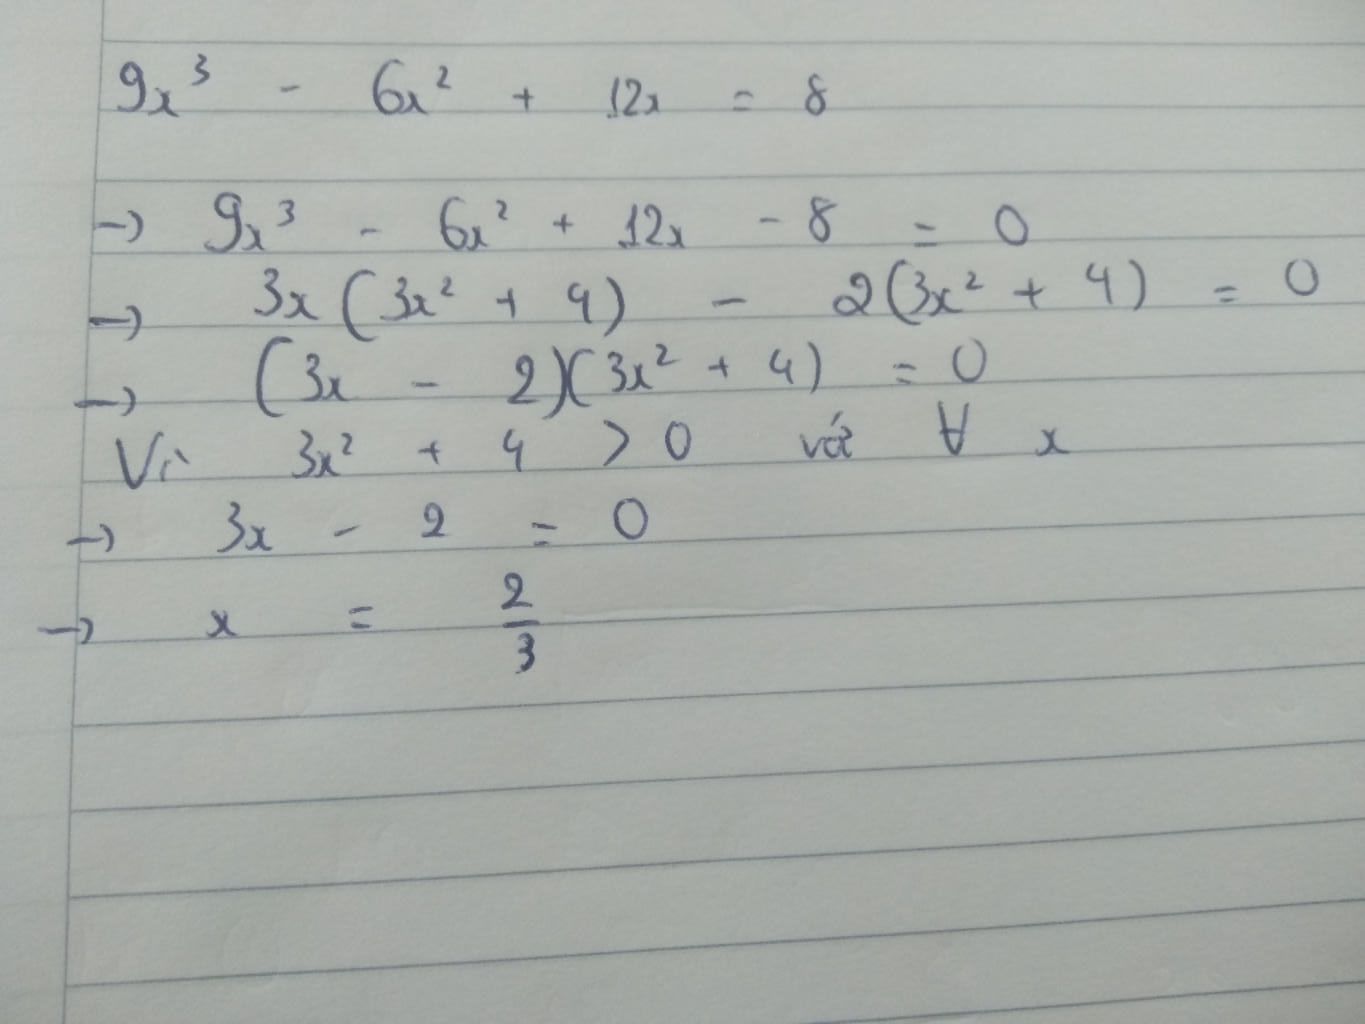 9x³ - 6x² + 12x = 8
→ 9x³ - 6x² + 12x - 8 = 0
→ 3x(3x² + 4) - 2(3x² + 4) = 0
→ (3x - 2)(3x² + 4) = 0
Vì 3x² + 4 > 0 với ∀ x
→ 3x - 2 = 0
→ x = 2/3